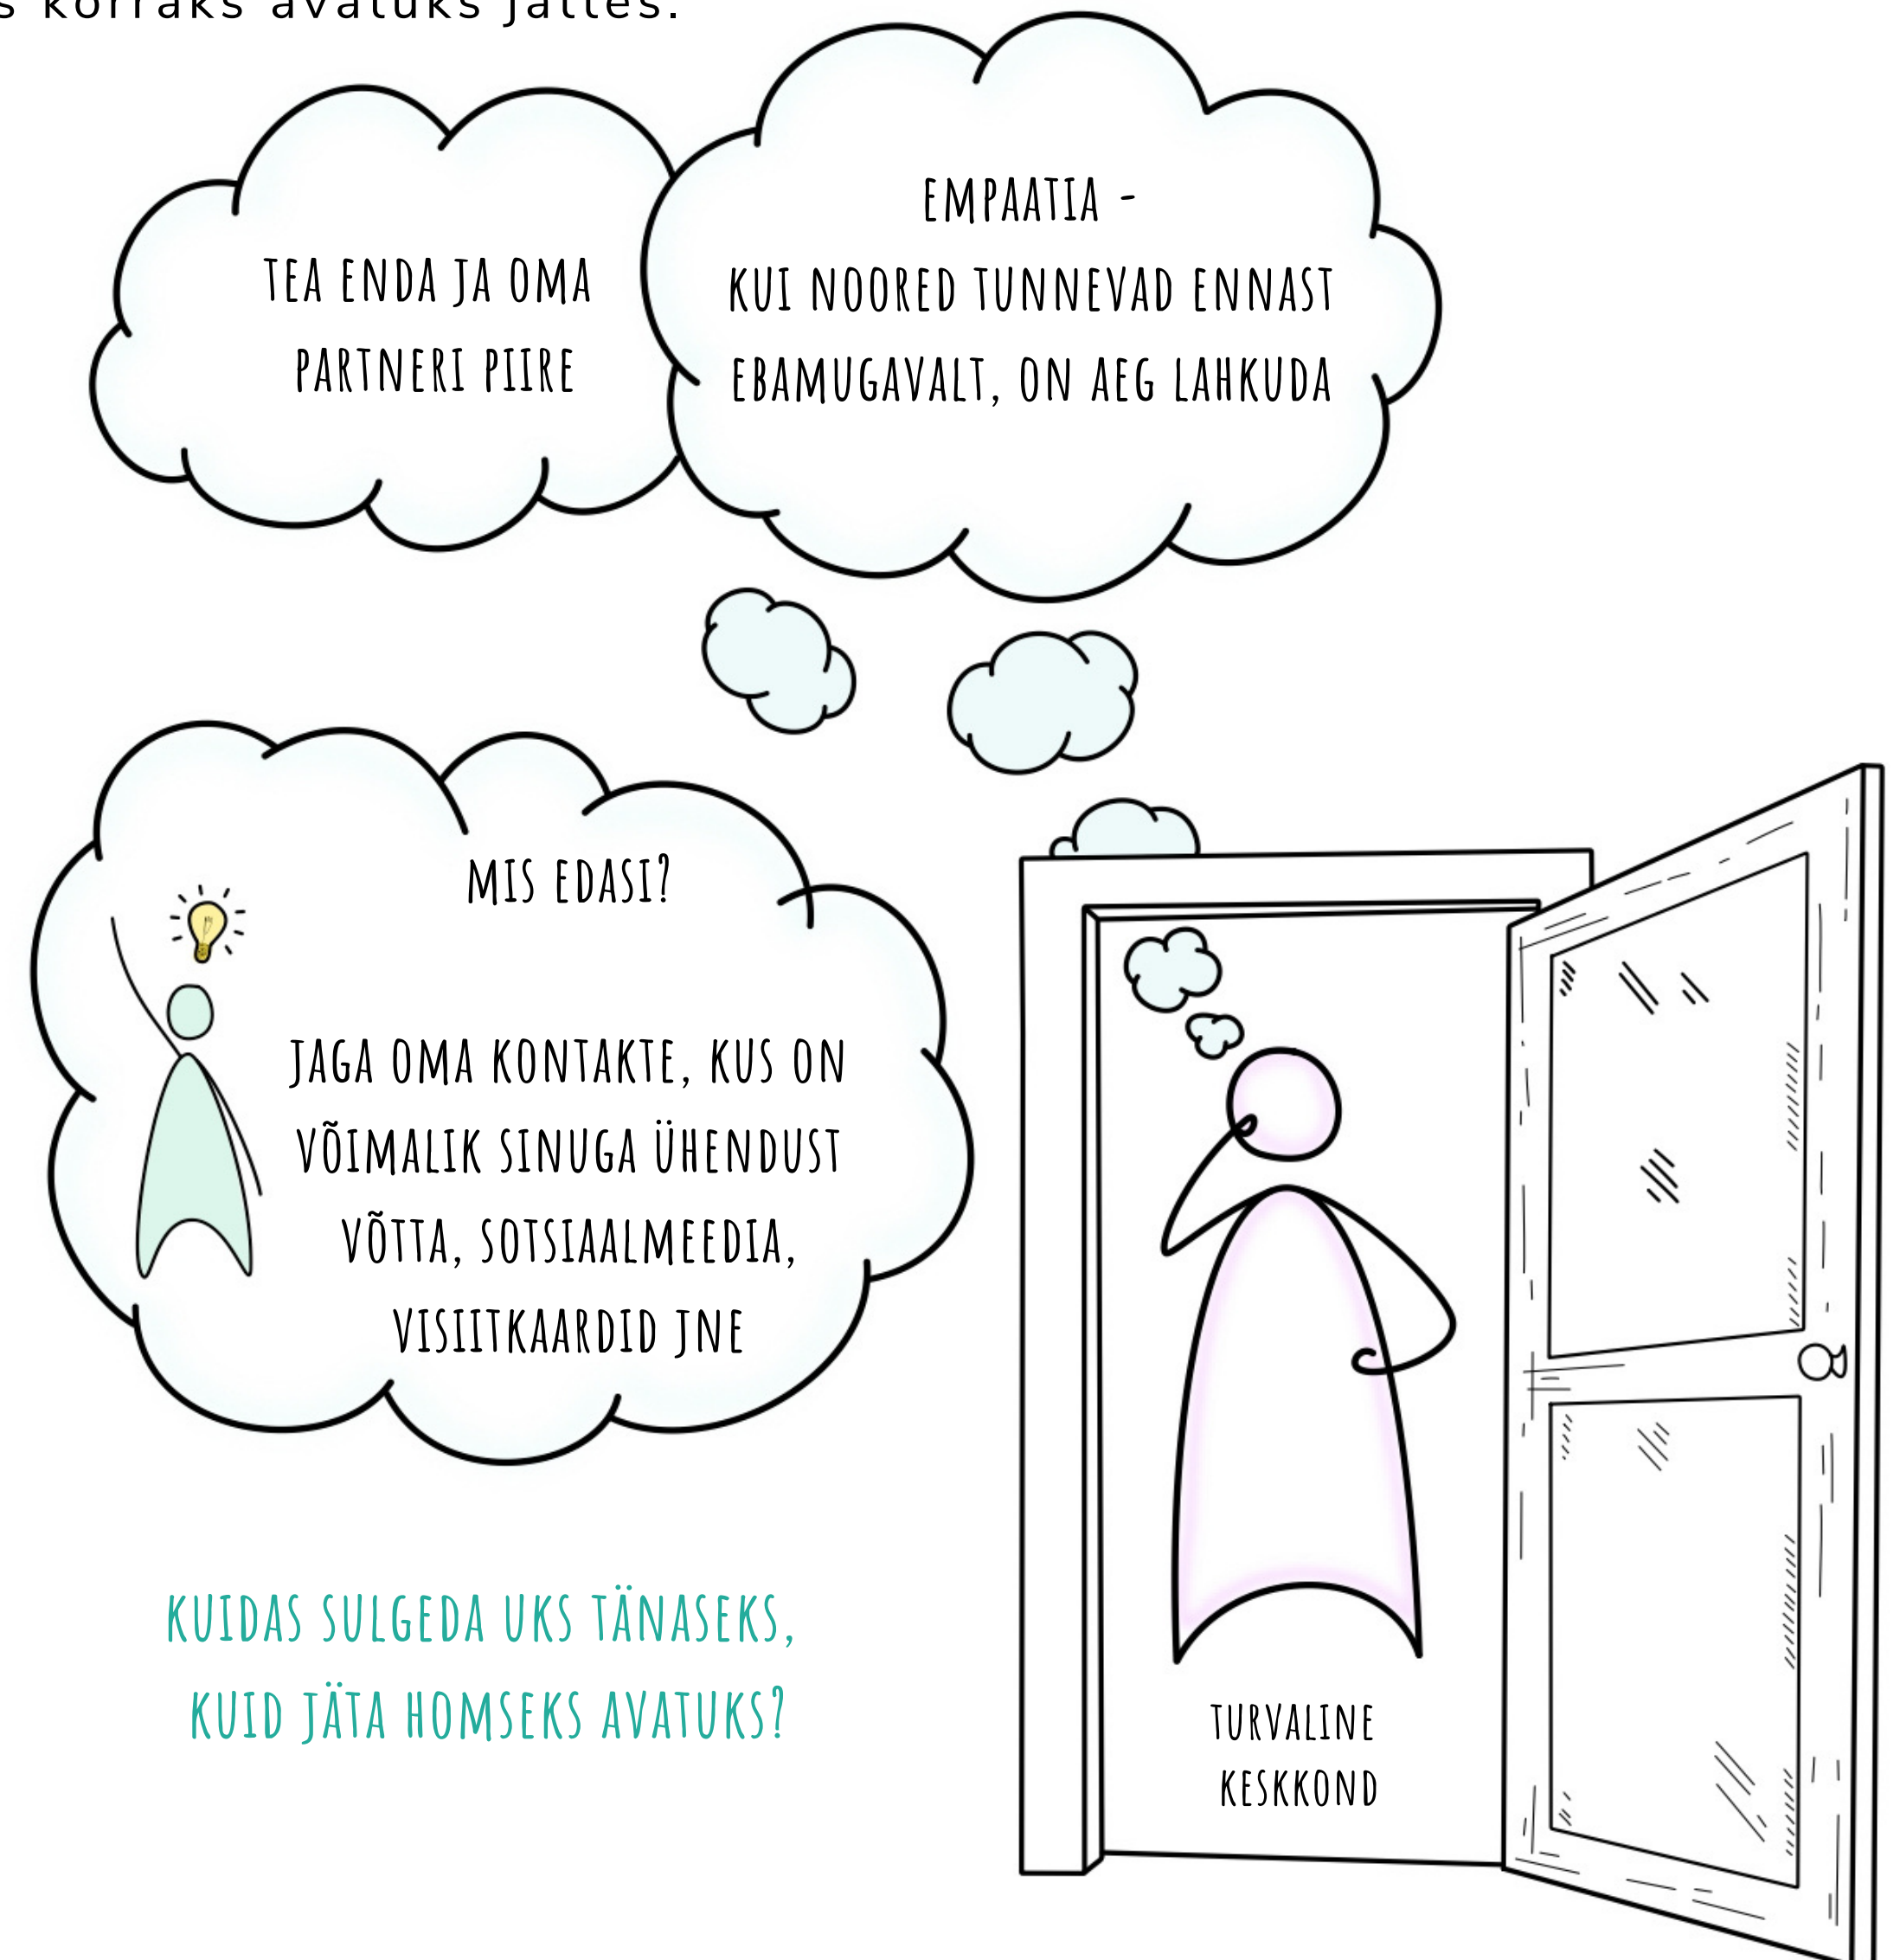 s korraks avatuks jättes.
TEA ENDA JA OMA
PARTNERI PIIRE
EMPAATIA -
KUI NOORED TUNNEVAD ENNAST
EBAMUGAVALT, ON AEG LAHKUDA
MIS EDASI?
JAGA OMA KONTAKTE, KUS ON
VÕIMALIK SINUGA ÜHENDUST
VÕTTA, SOTSIAALMEEDIA,
VISIITKAARDID JNE
KUIDAS SULGEDA UKS TÄNASEKS,
KUID JÄTA HOMSEKS AVATUKS?
TURVALINE
KESKKOND